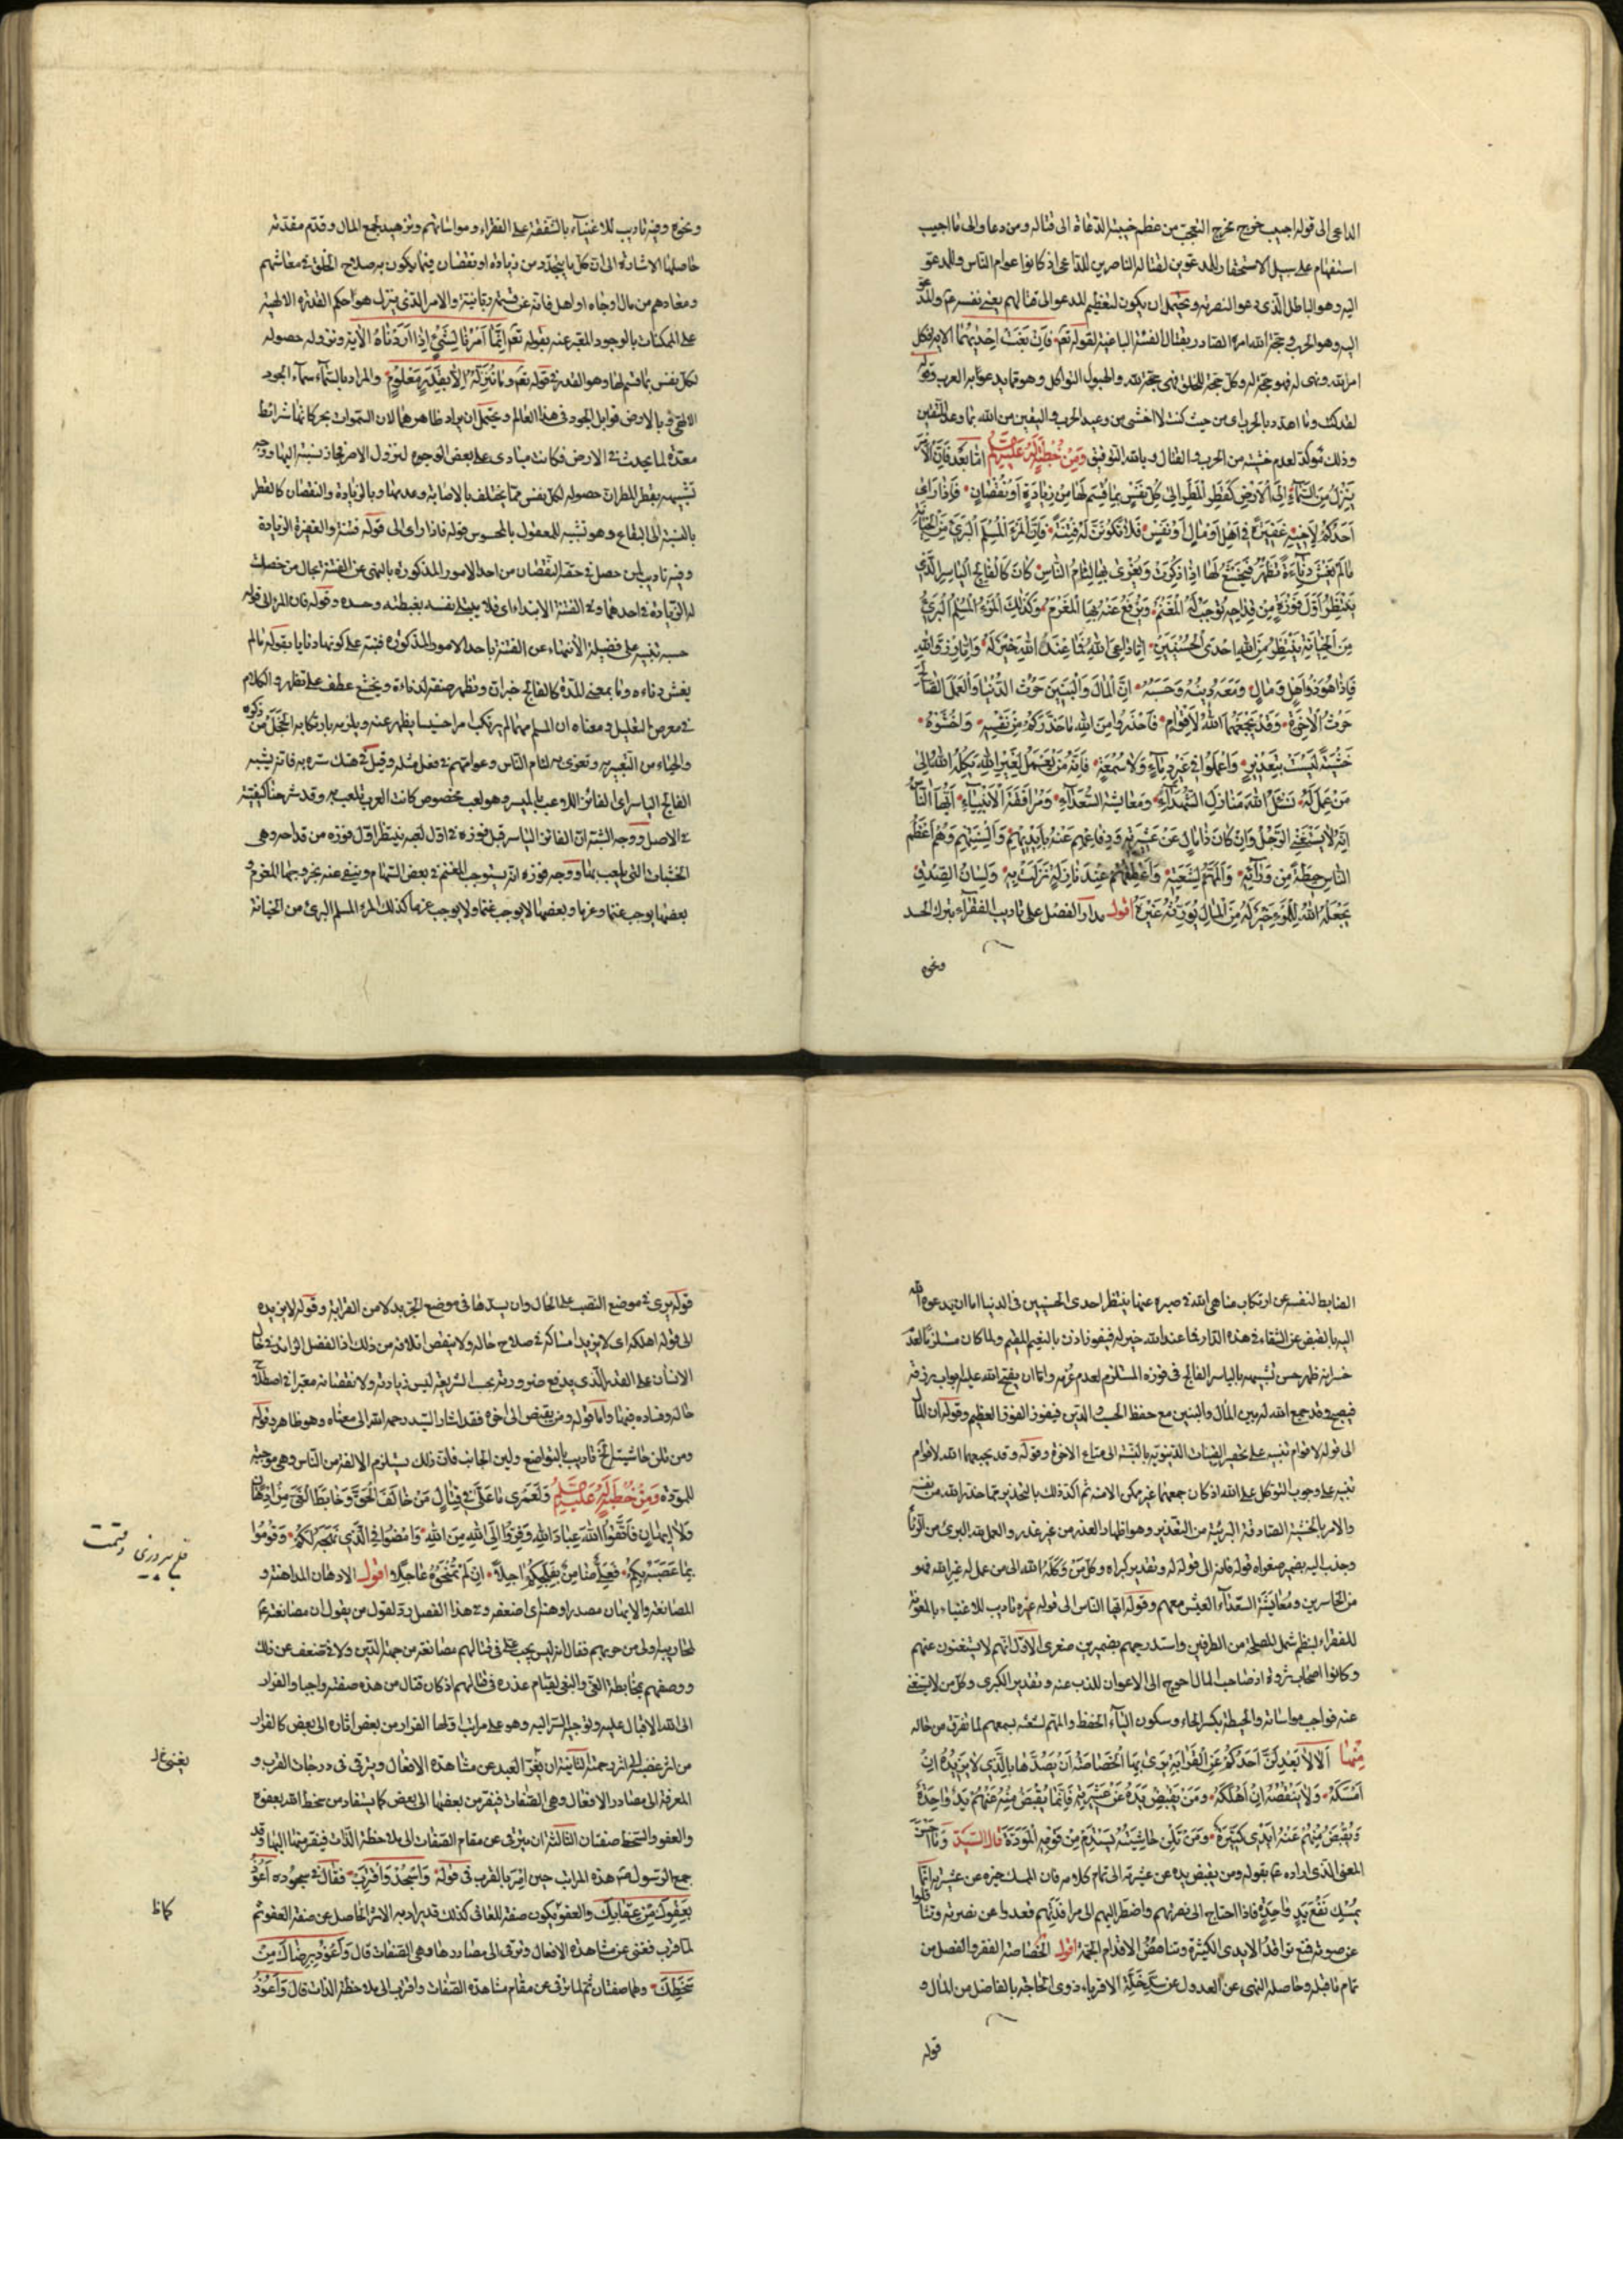 الداعى الى قوله اجيب خرج مخرج التعجب من عظم خيبة الدعاة الى قتاله ومن دعا والى ما اجيب
استفهام على سبيل الاستحقار للمدعوين لقتاله الناصرين للداعى اذ كانوا عوام الناس وللمدعو
اليه وهو الباطل الذى دعوا لنصرته ويحتمل ان يكون لتعظيم المدعو الى قتالهم يعنى نفسه عم والمدعو
اليه وهو الحرب وحجة الله امره الصادر بقتال الفئة الباغية لقوله تعم فَاِنْ بَغَتْ اِحْدٰيهُمَا الاية فكل
امر لله ونهى له فهو حجة له وكل حجة للخلق فهى حجة لله والهبول الثواكل وهو مما يدعوا به العرب وقوله
لقد كنت وما اهدد بالحرب اى من حيث كنت لا اخشى من وعيد الحرب واليقين من الله بما وعد المتقين
وذلك مؤكد لعدم خشيته من الحرب والقتال وبالله التوفيق وَمِنْ خُطْبَةٍ لَهُ عَلَيْهِ السلام امّا بَعْد فَاِنَّ الْاَمْرَ
يَنْزِلُ مِنَ السَّمَاءِ اِلَى الْاَرْضِ كَقَطْرِ الْمَطَرِ اِلٰى كُلِّ نَفْسٍ بِمَا قُسِمَ لَهَا مِنْ زِيَادَةٍ اَوْ نُقْصَانٍ فَاِذَا رَاٰى
اَحَدُكُمْ لِاَخِيْهِ غَفِيْرَةً فِى اَهْلٍ اَوْ مَالٍ اَوْ نَفْسٍ فَلَا تَكُوْنَنَّ لَهُ فِتْنَةً فَاِنَّ الْمَرْءَ الْمُسْلِمَ الْبَرِىْءَ مِنَ الْخِيَانَةِ
مَا لَمْ يَغْشَ دَنَاءَةً تَظْهَرُ فَيَخْشَعُ لَهَا اِذَا ذُكِرَتْ وَيُغْرٰى بِهَا لِئَامُ النَّاسِ كَانَ كَالْفَالِجِ الْيَاسِرِ الَّذِى
يَنْتَظِرُ اَوَّلَ فَوْزَةٍ مِنْ قِدَاحِهِ تُوْجِبُ لَهُ الْمَغْنَمَ وَيُرْفَعُ عَنْهُ بِهَا الْمَغْرَمُ وَكَذٰلِكَ الْمَرْءُ الْمُسْلِمُ الْبَرِىءُ
مِنَ الْخِيَانَةِ يَنْتَظِرُ مِنَ اللهِ اِحْدَى الْحُسْنَيَيْنِ اِمَّا دَاعِىَ اللهِ فَمَا عِنْدَ اللهِ خَيْرٌ لَهُ وَاِمَّا رِزْقَ اللهِ
فَاِذَا هُوَ ذُو اَهْلٍ وَمَالٍ وَمَعَهُ دِيْنُهُ وَحَسَبُهُ اِنَّ الْمَالَ وَالْبَنِيْنَ حَرْثُ الدُّنْيَا وَالْعَمَلَ الصَّالِحَ
حَرْثُ الْاٰخِرَةِ وَقَدْ يَجْمَعُهُمَا اللهُ لِاَقْوَامٍ فَاحْذَرُوا مِنَ اللهِ مَا حَذَّرَكُمْ مِنْ نَفْسِهِ وَاخْشَوْهُ
خَشْيَةً لَيْسَتْ بِتَعْذِيْرٍ وَاعْمَلُوا فِى غَيْرِ رِيَاءٍ وَلَا سُمْعَةٍ فَاِنَّهُ مَنْ يَعْمَلْ لِغَيْرِ اللهِ يَكِلْهُ اللهُ اِلٰى
مَنْ عَمِلَ لَهُ نَسْئَلُ اللهَ مَنَازِلَ الشُّهَدَاءِ وَمُعَايَشَةَ السُّعَدَاءِ وَمُرَافَقَةَ الْاَنْبِيَاءِ اَيُّهَا النَّاسُ
اِنَّهُ لَا يَسْتَغْنِى الرَّجُلُ وَاِنْ كَانَ ذَا مَالٍ عَنْ عَشِيْرَتِهِ وَدِفَاعِهِمْ عَنْهُ بِاَيْدِيْهِمْ وَاَلْسِنَتِهِمْ وَهُمْ اَعْظَمُ
النَّاسِ حِيْطَةً مِنْ وَرَائِهِ وَاَلَمُّهُمْ لِشَعَثِهِ وَاَعْطَفُهُمْ عِنْدَ نَازِلَةٍ نَزَلَتْ بِهِ وَلِسَانُ الصِّدْقِ
يَجْعَلُهُ اللهُ لِلْمَرْءِ خَيْرٌ لَهُ مِنَ الْمَالِ يُوَرِّثُهُ غَيْرَهُ اقول مدار الفصل على تاديب الفقراء بترك الحسد
ونحوه
ونحوه وفيه تاديب للاغنياء بالشفقة على الفقراء ومواساتهم وتزهيد بجمع المال وقدم مقدمة
حاصلها الاشارة الى ان كل ما يتجدد من زيادة او نقصان فيما يكون به صلاح الخلق فى معاشهم
ومعادهم من مال او جاه او اهل فانه عن قسمة ربانية والامر الذى ينزل هو احكم القدرة الالهية
على الممكنات بالوجود المعبر عنه بقوله تعم اِنَّمَا اَمْرُنَا لِشَىْءٍ اِذَا اَرَدْنَاهُ الاية ونزوله حصوله
لكل نفس بما قسم لها وهو القدر فى قوله تعم وَمَا نُنَزِّلُهُ اِلَّا بِقَدَرٍ مَعْلُوْمٍ والمراد بالسماء سماء الجود
الالهى وبالارض قوابل الجود فى هذا العالم ويحتمل ان يراد ظاهرهما لان السموات بحركاتها شرائط
معدة لما يحدث فى الارض فكانت مبادى على بعض الوجوه لنزول الامر فجاز نسبته اليها ووجه
تشبيهه بقطر المطر ان حصوله لكل نفس مما يختلف بالاصابة وعدمها وبالزيادة والنقصان كالقطر
بالنسبة الى البقاع وهو تشبيه للمعقول بالمحسوس قوله فاذا راى الى قوله فتنة والغفيرة الزيادة
وفيه تاديب لمن حصل فى حقه النقصان من احد الامور المذكورة بالنهى عن الفتنة بحال من حصلت
له الزيادة فى احدهما وفى الفتنة الابتداء اى فلا يبتلى نفسه بغبطته وحسده وقوله فان المرء الى قوله
حسبه تنبيه على فضيلة الانتهاء عن الفتنة باحد الامور المذكورة فنبه على كونها دنايا بقوله ما لم
يغش دناءة وما بمعنى المدة كالفالج خبر ان وتظهر صفة لدناءة ويخشع عطف على تظهر والكلام
فى معرض التعليل ومعناه ان المسلم مهما لم يرتكب امرا خسيسا يظهر عنه ويلزمه بارتكابه الخجل من ذكره
والحياء من التعيير به وتغرى به لئام الناس وعوامهم فى فعل مثله وقيل فى هتك ستره به فانه يشبه
الفالج الياسر اى الفائز اللاعب بالميسر وهو لعب مخصوص كانت العرب تلعب به وقد شرحنا كيفيته
فى الاصل ووجه الشبه ان الفائز الياسر قبل فوزه فى اول لعبه ينتظر اول فوزه من قداحه وهى
الخشبات التى يلعب بها ووجه فوزه انه يستوجب المغنم فى بعض السهام وينتفى عنه بخروجها المغرم و
بعضها يوجب غنما وغرما وبعضها لا يوجب غنما ولا يوجب غرما كذلك المرء المسلم البرئ من الخيانة
الضابط لنفسه عن ارتكاب مناهى الله فى صبره عنها ينتظر احدى الحسنيين فى الدنيا اما ان يدعوه الله
اليه بالقبض عن الشقاء فى هذه الدار فما عند الله خير له فيفوز اذن بالنعيم المقيم ولما كان مستلزما لعدم
خسرانه ظهر حسن تشبيهه بالياسر الفالج فى فوزه المستلزم لعدم غرمه واما ان يفتح الله عليه ابواب رزقه
فيصبح وقد جمع الله له بين المال والبنين مع حفظ الحسب والدين فيفوز الفوز العظيم وقوله ان المال
الى قوله لاقوام تنبيه على تحقير القينات الدنيوية بالنسبة الى متاع الاخرة وقوله وقد يجمعهما الله لاقوام
تنبيه على وجوب التوكل على الله اذ كان جمعهما غير ممكن الا منه ثم اكد ذلك بالتحذير مما حذر الله من نفسه
والامر بالخشية الصادقة البريئة من التعذير وهو اظهار العذر من غير عذر والعمل لله البرئ من الرياء
وجذب اليه بضمير صغراه قوله فانه الى قوله له وتقدير كبراه وكل من وَكَلَهُ الله الى من عمل له غير الله فهو
من الخاسرين ومُعَايَشَة السعداء العيش معهم وقوله ايها الناس الى قوله غيره تاديب للاغنياء بالمعونة
للفقراء لينظم شمل المصلحة من الطرفين واستدرجهم بضميرين صغرى الاول انهم لا يستغنون عنهم
وكانوا اصحاب ثروة اذ صاحب المال احوج الى الاعوان للذب عنه وتقدير الكبرى وكل من لا يستغنى
عنه فواجب مواساته والحيطة بكسر الحاء وسكون الياء الحفظ والمهم لشعثه بجمعهم لما تفرق من حاله
مِنْهَا اَلَا لَا يَعْدِلَنَّ اَحَدُكُمْ عَنِ الْقَرَابَةِ يَرٰى بِهَا الْخَصَاصَةَ اَنْ يَسُدَّهَا بِالَّذِى لَا يَزِيْدُهُ اِنْ
اَمْسَكَهُ وَلَا يَنْقُصُهُ اِنْ اَهْلَكَهُ وَمَنْ يَقْبِضْ يَدَهُ عَنْ عَشِيْرَتِهِ فَاِنَّمَا يُقْبَضُ مِنْهُ عَنْهُمْ يَدٌ وَاحِدَةٌ
وَتُقْبَضُ مِنْهُمْ عَنْهُ اَيْدِى كَثِيْرَةٌ وَمَنْ تَلِنْ حَاشِيَتُهُ يَسْتَدِمْ مِنْ قَوْمِهِ الْمَوَدَّةَ قال السَّيِّد وَمَا اَحْسَنَ
المعنى الذى اراده عم بقوله ومن يقبض يده عن عشيرته الى تمام كلامه فان الممسك خيره عن عشيرته انما
يُمْسِكُ نَفْعَ يَدٍ وَاحِدَةٍ فاذا احتاج الى نصرتهم واضطر اليهم الى مرافدتهم قعدوا عن نصرته وتثاقلوا
عن صوته فمنع ترافد الايدى الكثيرة وتناهض الاقدام الجمة اقول الخصاصة الفقر والفصل من
تمام ما قبله وحاصله النهى عن العدول عن سد خلة الاقرباء ذوى الحاجة بالفاضل من المال و
قوله
قوله يرى فى موضع النصب على الحال وان يسدها فى موضع الجر بدلا من القرابة وقوله لا يزيده
الى قوله اهلكه اى لا يزيد امساكه فى صلاح حاله ولا ينقص اتلافه من ذلك اذ الفضل الزائد فى حال
الانسان على القدر الذى يدفع ضرورته بحسب الشريعة ليس زيادته ولا نقصانه معتبرا فى اصلاح
حاله وفساده فيها واما قوله ومن يقبض الى اخره فقد اشار السيد رحمه الله الى معناه وهو ظاهر وقوله
ومن تلن حاشيته الخ تاديب بالتواضع ولين الجانب فان ذلك يستلزم الالفة من الناس وهى موجبة
للمودة وَمِنْ خُطْبَةٍ لَهُ عَلَيْهِ السلام وَلَعَمْرِى مَا عَلَىَّ فِى قِتَالِ مَنْ خَالَفَ الْحَقَّ وَخَابَطَ الْغَىَّ مِنْ اِدْهَانٍ
وَلَا اِيْهَانٍ فَاتَّقُوا اللهَ عِبَادَ اللهِ وَفِرُّوا اِلَى اللهِ مِنَ اللهِ وَامْضُوا فِى الَّذِى نَهَجَهُ لَكُمْ وَقُوْمُوا
بِمَا عَصَبَهُ بِكُمْ فَعَلِىٌّ ضَامِنٌ لِفَلْجِكُمْ اٰجِلًا اِنْ لَمْ تُمْنَحُوْهُ عَاجِلًا اقول الادهان المداهنة و
المصانعة والايهان مصدر اوهنته اى اضعفته وفى هذا الفصل رد لقول من يقول ان مصانعته عم
لمحاربيه اولى من حربهم فقال انه ليس يجب على فى قتالهم مصانعة من جهة الدين ولا فى ضعف عن ذلك
ووصفهم بمخابطة الغى والبغى لقيام عذره فى قتالهم اذ كان قتال من هذه صفته واجبا والفرار
الى الله الاقبال عليه وتوجيه السر اليه وهو على مراتب اولها الفرار من بعض اثاره الى بعض كالفرار
من اثر غضبه الى اثر رحمته الثانية ان يفر العبد عن مشاهدة الافعال ويترقى فى درجات القرب و
المعرفة الى مصادر الافعال وهى الصفات فيفر من بعضها الى بعض كما يستفاد من سخط الله بعفوه
والعفو والسخط صفتان الثالثة ان يترقى عن مقام الصفات الى ملاحظة الذات فيفر منها اليها وقد
جمع الرسول هذه المراتب حين امر بالقرب فى قوله وَاسْجُدْ وَاقْتَرِبْ فقال فى سجوده اَعُوْذُ
بِعَفْوِكَ مِنْ عِقَابِكَ والعفو يكون صفة للعافى كذلك قد يراد به الاثر الحاصل عن صفة العفو ثم
لما قرب فغنى عن مشاهدة الافعال وترقى الى مصادرها وهى الصفات قال وَاَعُوْذُ بِرِضَاكَ مِنْ
سَخَطِكَ وهما صفتان ثم لما ترقى عن مقام مشاهدة الصفات واقترب الى ملاحظة الذات قال وَاَعُوْذُ
فلج پیروزی